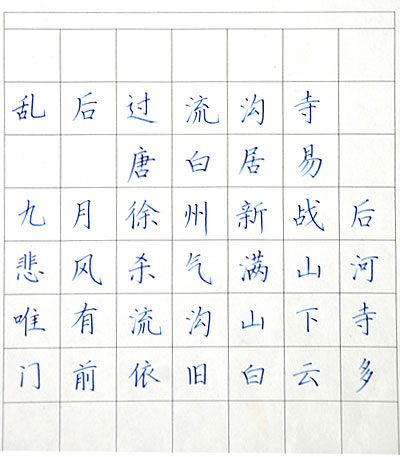 乱后过流沟寺
唐白居易
九月徐州新战后
悲风杀气满山河
唯有流沟山下寺
门前依旧白云多